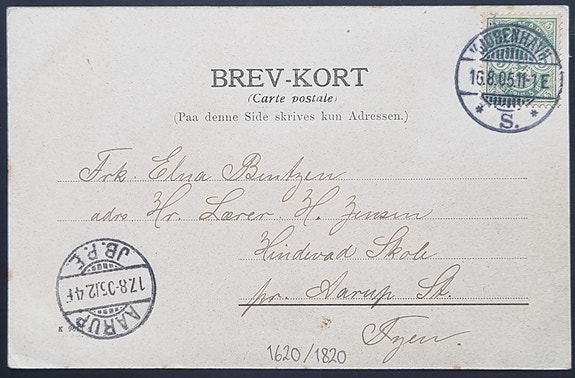 5
KJØBENHAVN
16.8.05.11-1E
* S. *
BREV-KORT
(Carte postale)
(Paa denne Side skrives kun Adressen.)
Frk. Elna Bentzen
adrs Hr. Lærer. H. Jensen
Hindevad Skole
pr. Aarup St.
Fyen.
JB.P.E.
17.8-05.12.4F
AARUP
K
1620/1820